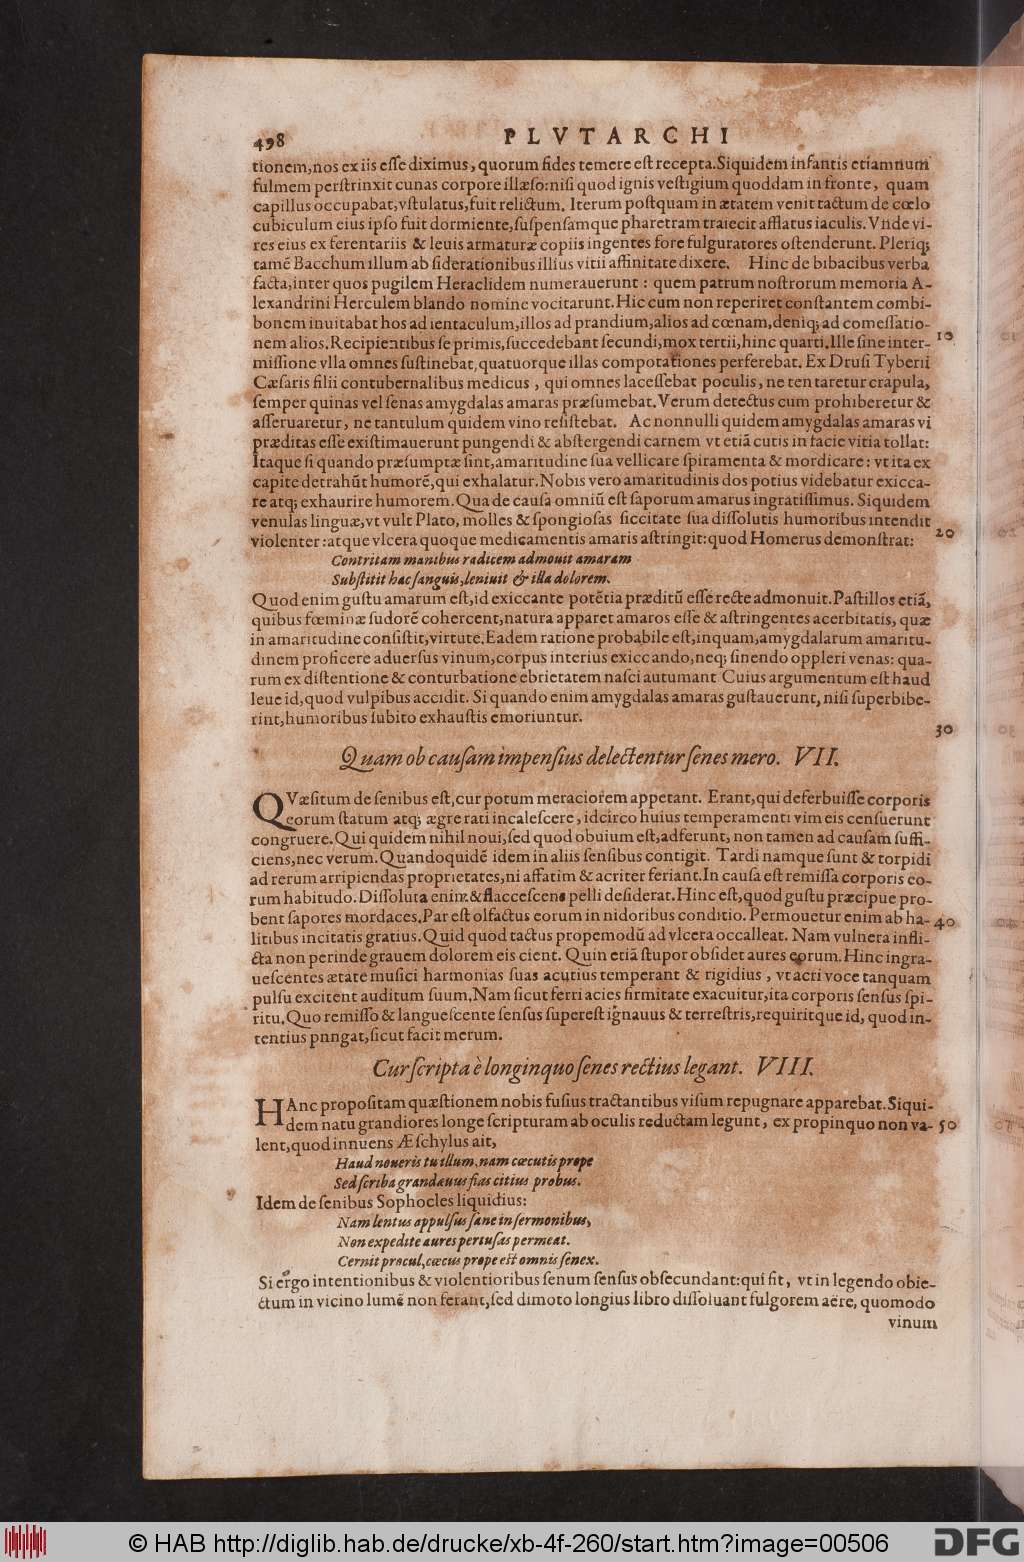 498 PLVTARCHI
tionem,nos ex iis eſſe diximus, quorum fides temere eſt recepta.Siquidem infantis etiamnum
fulmem perſtrinxit cunas corpore illæſo:niſi quod ignis veſtigium quoddam in fronte, quam
capillus occupabat,vſtulatus,fuit relictum. Iterum poſtquam in ætatem venit tactum de cœlo
cubiculum eius ipſo fuit dormiente,ſuſpenſamque pharetram traiecit afflatus iaculis. Vnde vi-
res eius ex ferentariis & leuis armaturæ copiis ingentes fore fulguratores oſtenderunt. Pleriq;
tamē Bacchum illum ab ſiderationibus illius vitii affinitate dixere. Hinc de bibacibus verba
facta,inter quos pugilem Heraclidem numerauerunt : quem patrum noſtrorum memoria A-
lexandrini Herculem blando nomine vocitarunt. Hic cum non reperiret conſtantem combi-
bonem inuitabat hos ad ientaculum,illos ad prandium,alios ad cœnam,deniq; ad comeſſatio-
nem alios. Recipientibus ſe primis,ſuccedebant ſecundi,mox tertii,hinc quarti.Ille ſine inter- 10
miſſione vlla omnes ſuſtinebat,quatuorque illas compotationes perferebat. Ex Druſi Tyberii
Cæſaris filii contubernalibus medicus , qui omnes laceſſebat poculis, ne ten taretur crapula,
ſemper quinas vel ſenas amygdalas amaras præſumebat. Verum detectus cum prohiberetur &
aſſeruaretur, ne tantulum quidem vino reſiſtebat. Ac nonnulli quidem amygdalas amaras vi
præditas eſſe exiſtimauerunt pungendi & abſtergendi carnem vt etiā cutis in facie vitia tollat:
Itaque ſi quando præſumptæ ſint,amaritudine ſua vellicare ſpiramenta & mordicare: vt ita ex
capite detrahūt humorē,qui exhalatur.Nobis vero amaritudinis dos potius videbatur exicca-
re atq; exhaurire humorem. Qua de cauſa omniū eſt ſaporum amarus ingratiſſimus. Siquidem
venulas linguæ,vt vult Plato, molles & ſpongioſas ſiccitate ſua diſſolutis humoribus intendit
violenter:atque vlcera quoque medicamentis amaris aſtringit:quod Homerus demonſtrat: 20
Contritam manibus radicem admouit amaram
Subſtitit hac ſanguis,leniuit & illa dolorem.
Quod enim guſtu amarum eſt,id exiccante potētia præditū eſſe recte admonuit.Paſtillos etiā,
quibus fœminæ ſudorē cohercent,natura apparet amaros eſſe & aſtringentes acerbitatis, quæ
in amaritudine conſiſtit,virtute.Eadem ratione probabile eſt,inquam,amygdalarum amaritu-
dinem proficere aduerſus vinum,corpus interius exiccando,neq; ſinendo oppleri venas: qua-
rum ex diſtentione & conturbatione ebrietatem naſci autumant Cuius argumentum eſt haud
leue id,quod vulpibus accidit. Si quando enim amygdalas amaras guſtauerunt, niſi ſuperbibe-
rint,humoribus ſubito exhauſtis emoriuntur.
30
Quam ob cauſam impenſius delectentur ſenes mero. VII.
QVæſitum de ſenibus eſt,cur potum meraciorem appetant. Erant,qui deferbuiſſe corporis
eorum ſtatum atq; ægre rati incaleſcere, idcirco huius temperamenti vim eis cenſuerunt
congruere. Qui quidem nihil noui,ſed quod obuium eſt,adferunt, non tamen ad cauſam ſuffi-
ciens,nec verum. Quandoquidē idem in aliis ſenſibus contigit. Tardi namque ſunt & torpidi
ad rerum arripiendas proprietates,ni affatim & acriter feriant.In cauſa eſt remiſſa corporis eo-
rum habitudo. Diſſoluta enim & flacceſcens pelli deſiderat.Hinc eſt,quod guſtu præcipue pro-
bent ſapores mordaces.Par eſt olfactus eorum in nidoribus conditio. Permouetur enim ab ha- 40
litibus incitatis gratius. Quid quod tactus propemodū ad vlcera occalleat. Nam vulnera infli-
cta non perinde grauem dolorem eis cient. Quin etiā ſtupor obſidet aures eorum. Hinc ingra-
ueſcentes ætate muſici harmonias ſuas acutius temperant & rigidius , vt acri voce tanquam
pulſu excitent auditum ſuum. Nam ſicut ferri acies firmitate exacuitur,ita corporis ſenſus ſpi-
ritu. Quo remiſſo & langueſcente ſenſus ſupereſt ignauus & terreſtris,requiritque id, quod in-
tentius pnngat,ſicut facit merum.
Cur ſcripta è longinquo ſenes rectius legant. VIII.
HAnc propoſitam quæſtionem nobis fuſius tractantibus viſum repugnare apparebat.Siqui-
dem natu grandiores longe ſcripturam ab oculis reductam legunt, ex propinquo non va- 50
lent,quod innuens Æſchylus ait,
Haud noueris tu illum. nam cæcutis prope
Sed ſcriba grandæuus fias citius probus.
Idem de ſenibus Sophocles liquidius:
Nam lentus appulſus ſane in ſermonibus,
Non expedite aures pertuſas permeat.
Cernit procul,cæcus prope eſt omnis ſenex.
Si ergo intentionibus & violentioribus ſenum ſenſus obſecundant:qui fit, vt in legendo obie-
ctum in vicino lumē non ferant,ſed dimoto longius libro diſſoluant fulgorem aëre, quomodo
vinum
© HAB http://diglib.hab.de/drucke/xb-4f-260/start.htm?image=00506 DFG